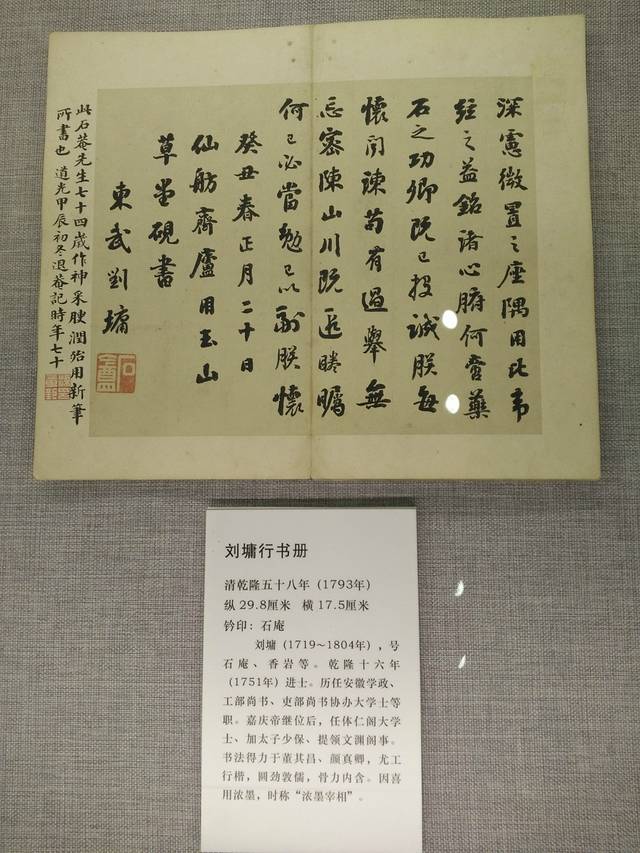 深慮微置之座隅用比韋
弦之益銘諸心腑何啻藥
石之功卿既已投誠朕每
懷聞諫苟有過舉無
忘密陳山川既近瞻矚
何已必當勉已以副朕懷
癸丑春正月二十日
仙舫齋廬用玉山
草堂硯書
東武劉墉
石庵
此石菴先生七十四歲作神采腴潤殆用新筆
所書也 道光甲辰初冬退菴記時年七十
刘墉行书册
清乾隆五十八年（1793年）
纵29.8厘米 横17.5厘米
钤印：石庵
刘墉（1719～1804年），号
石庵、香岩等。乾隆十六年
（1751年）进士。历任安徽学政、
工部尚书、吏部尚书协办大学士等
职。嘉庆帝继位后，任体仁阁大学
士、加太子少保、提领文渊阁事。
书法得力于董其昌、颜真卿，尤工
行楷，圆劲敦儒，骨力内含。因喜
用浓墨，时称“浓墨宰相”。